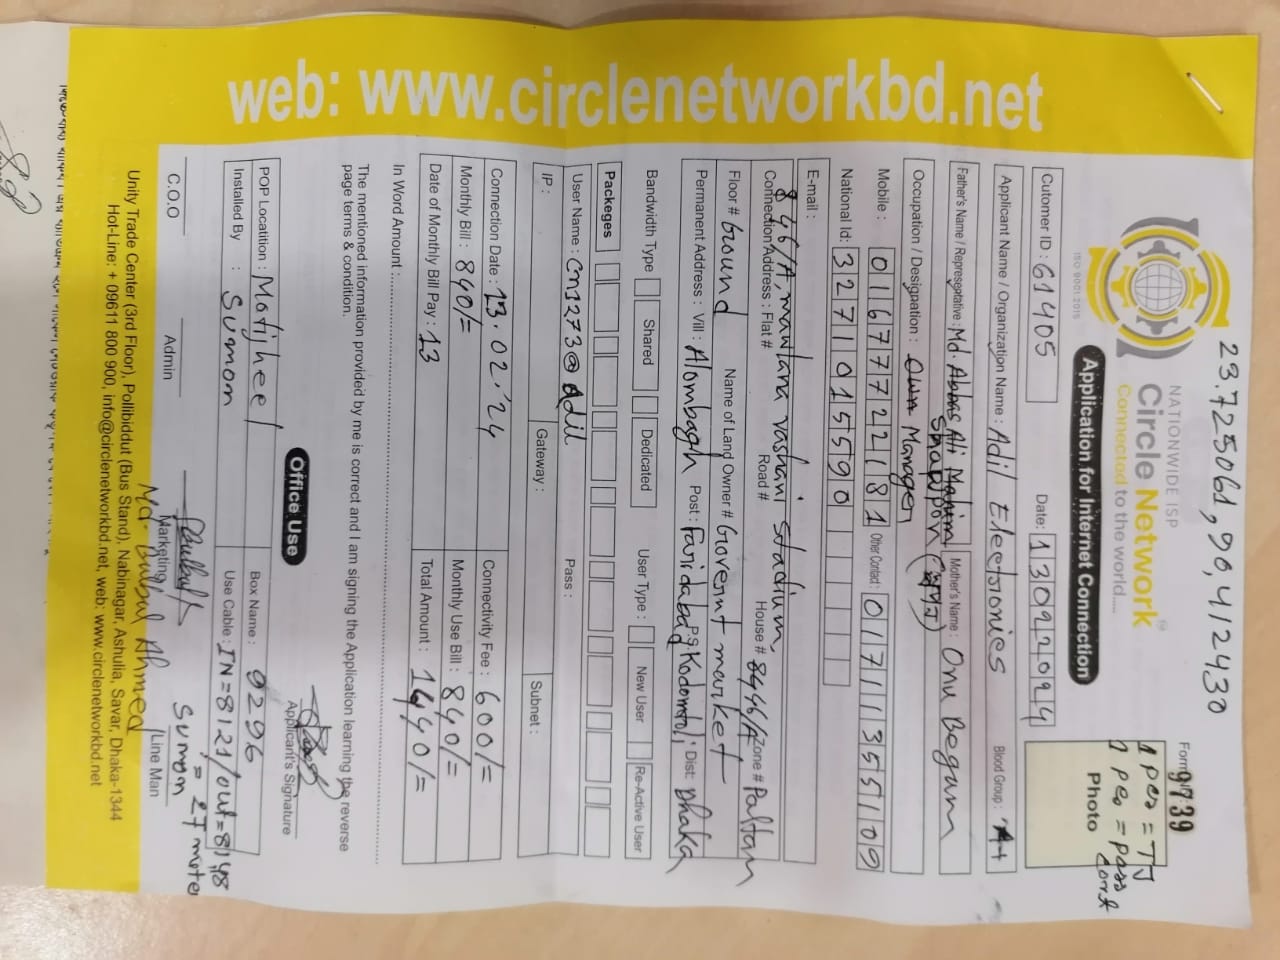 23.725061, 90.412430
NATIONWIDE ISP
Circle Network
Connected to the world....
ISO 9001:2015
Application for Internet Connection
Form No: 9739
1 pcs = TJ
1 pcs = pass
Photo
Cutomer ID : 61405
Date: 13022024
Applicant Name / Organization Name : Adil Electronics
Blood Group : A+
Father's Name / Representative : Md. Abbas Ali
Mother's Name : Onu Begum
Occupation / Designation : Own Manager
Mobile : 01677722181
Other Contact : 01711355109
National Id: 3271015590
E-mail :
846/A, mawlana vashani stadium,
Connection Address : Flat #
Road #
House # 8446/A
Zone # Paltan
Floor # Ground
Name of Land Owner # Goverint market
Permanent Address : Vill : Alombagh
Post : Faridabad
P.S: Kodomtoli
Dist: Dhaka
Bandwidth Type
Shared
Dedicated
User Type :
New User
Re-Active User
Packeges
User Name : cn1273@adil
Pass :
IP :
Gateway :
Subnet :
Connection Date : 13.02.24
Connectivity Fee : 600/=
Monthly Bill : 840/=
Monthly Use Bill : 840/=
Date of Monthly Bill Pay : 13
Total Amount : 1440/=
In Word Amount :
The mentioned information provided by me is correct and I am signing the Application learning the reverse
page terms & condition.
Applicant's Signature
Office Use
POP Locatition : Motijheel
Box Name : 9296
Installed By : Sumon
Use Cable : IN=8121/out=8148
= 27 mater
Sumon
C.O.O
Admin
Marketing
Line Man
Md. Bulbul Ahmed
Unity Trade Center (3rd Floor), Pollibiddut (Bus Stand), Nabinagar, Ashulia, Savar, Dhaka-1344
Hot-Line: + 09611 800 900, info@circlenetworkbd.net, web: www.circlenetworkbd.net
web: www.circlenetworkbd.net